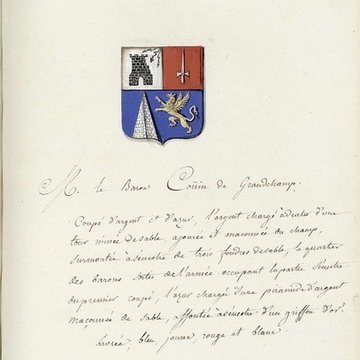 M. le Baron Coüin de Grandchamp.
Coupé d'argent et d'azur, l'argent chargé à dextre d'une
tour ruinée de sable ajourée et maçonnée du champ,
surmontée à senestre de trois foudres de sable, le quartier
des barons tirés de l'armée occupant la partie senestre
du premier coupé, l'azur chargé d'une piramide d'argent
maçonnée de sable, affrontée à senestre d'un griffon d'or.
livrée, bleu, jaune, rouge et blanc.